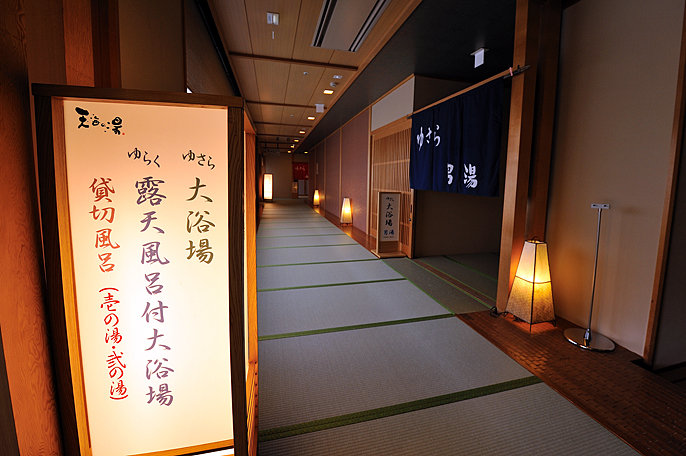 天谷の湯
ゆさら
大浴場
ゆらく
露天風呂付大浴場
貸切風呂
(壱の湯・弐の湯)
ゆさら
男湯
大浴場
男湯